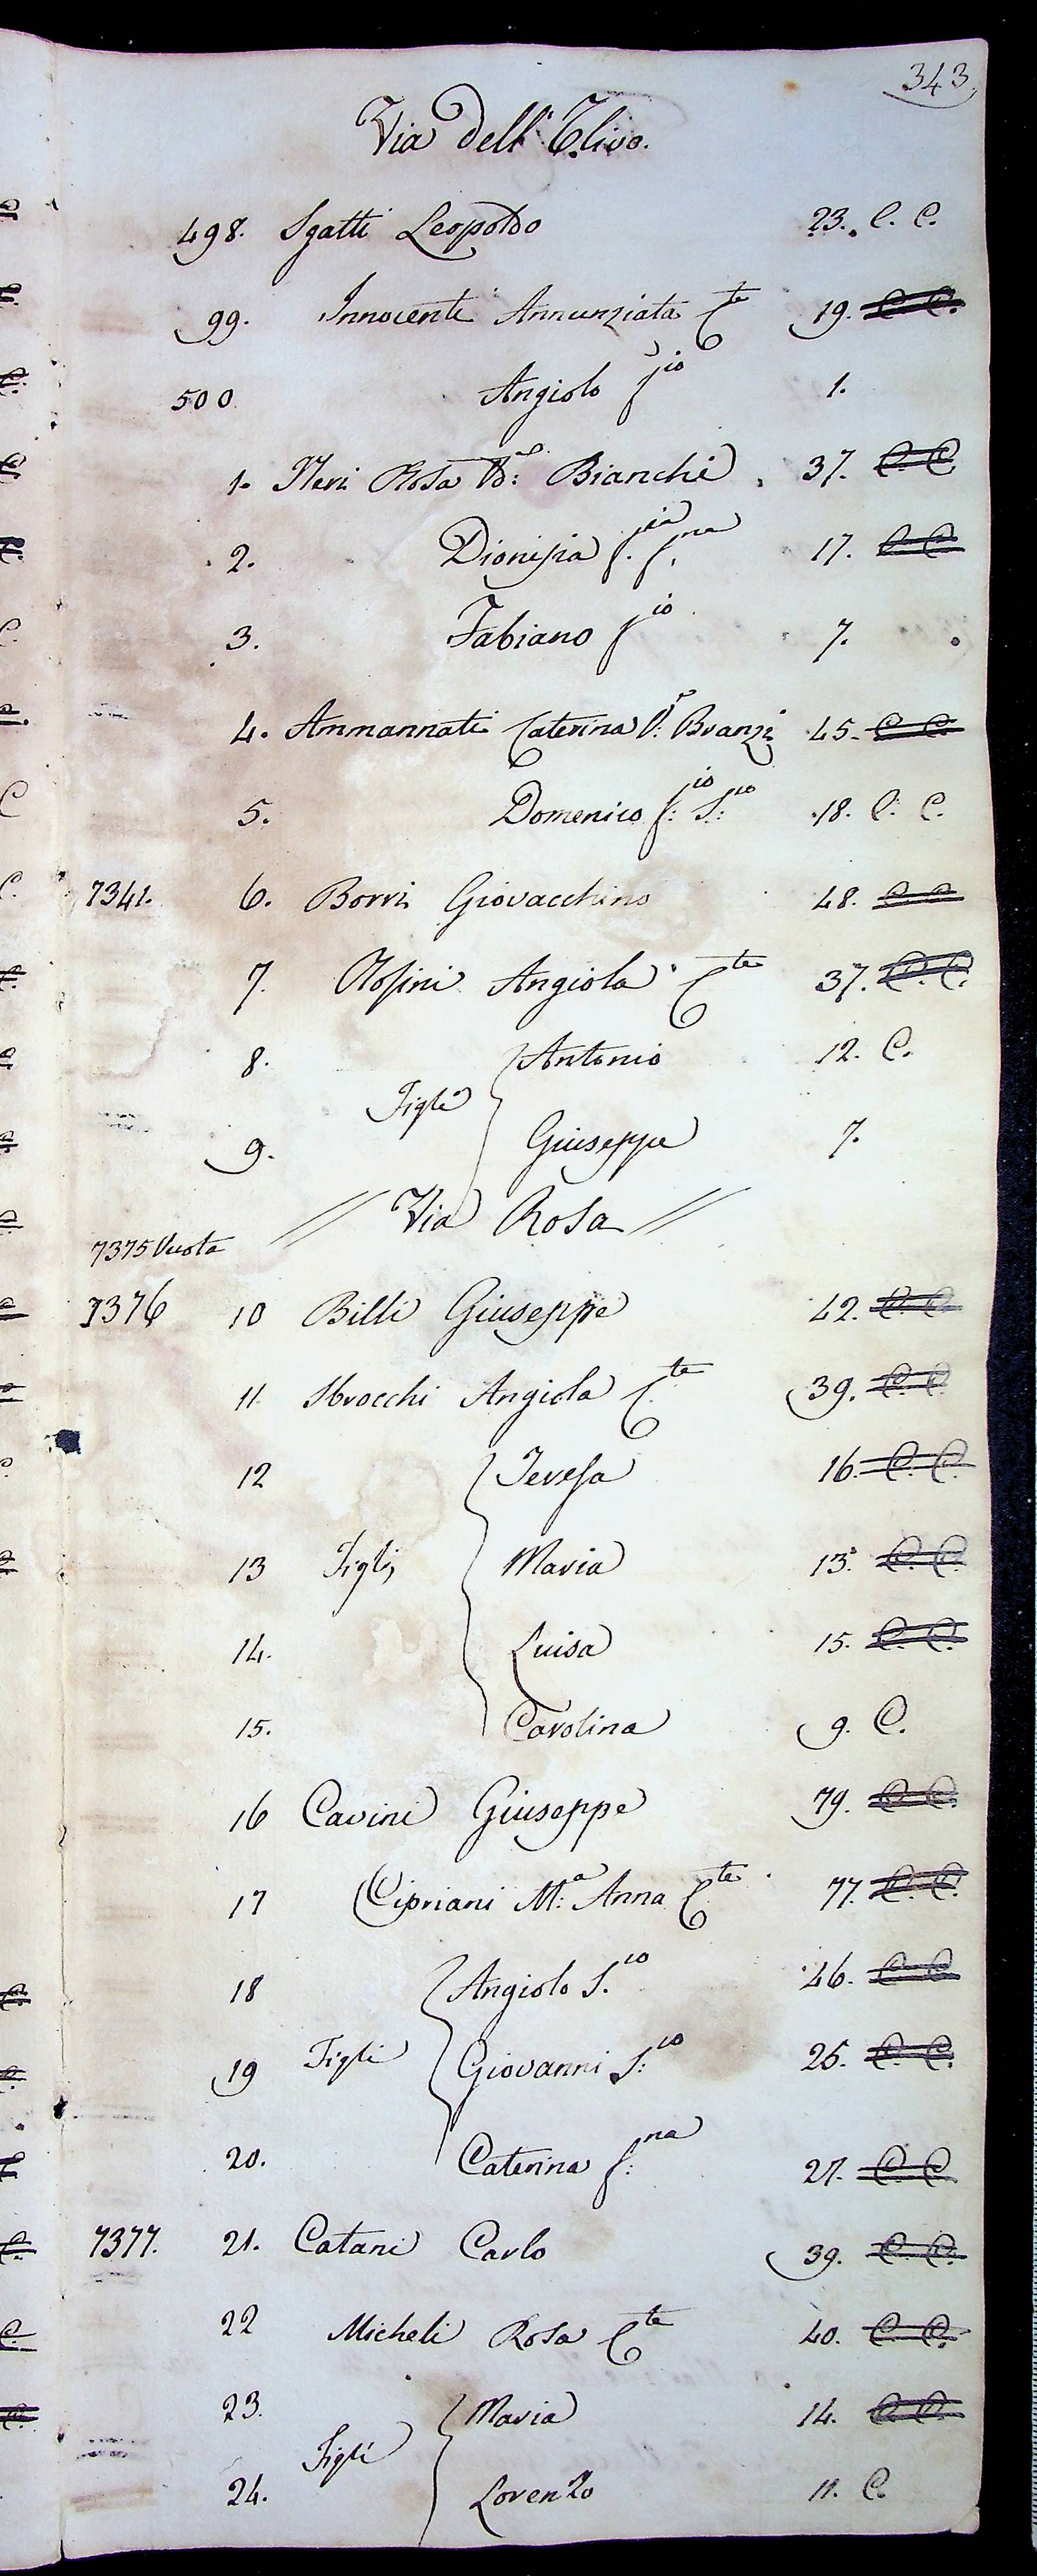 343.
Via dell' Ulivo.
498. Sgatti Leopoldo 23. C. C.
99. Innocenti Annunziata Cte 19. C. C.
500 Angiolo fio 1.
1. Neri Rosa Va: Bianchi 37. C. C.
2. Dionisia f.ia f.na 17. C. C.
3. Fabiano fio 7.
4. Ammannati Caterina Va: Branzi 45. C. C.
5. Domenico f:io S:lo 18. C. C.
7341. 6. Borri Giovacchino 48. C. C.
7. Rosini Angiola Cte 37. C. C.
8. Antonio 12. C.
Figli
9. Giuseppe 7.
// Via Rosa //
7375 Vuota
7376 10 Billi Giuseppe 42. C. C.
11. Sbrocchi Angiola Cte 39. C. C.
12 Teresa 16. C. C.
13 Figli Maria 13. C. C.
14. Luisa 15. C. C.
15. Carolina 9. C.
16 Cavini Giuseppe 79. C. C.
17 Cipriani M:a Anna Cte 77. C. C.
18 Angiolo S.lo 46. C. C.
19 Figli Giovanni S:lo 25. C. C.
20. Caterina f:na 27. C. C.
7377. 21. Catani Carlo 39. C. C.
22 Micheli Rosa Cte 40. C. C.
23. Maria 14. C. C.
Figli
24. Lorenzo 11. C.